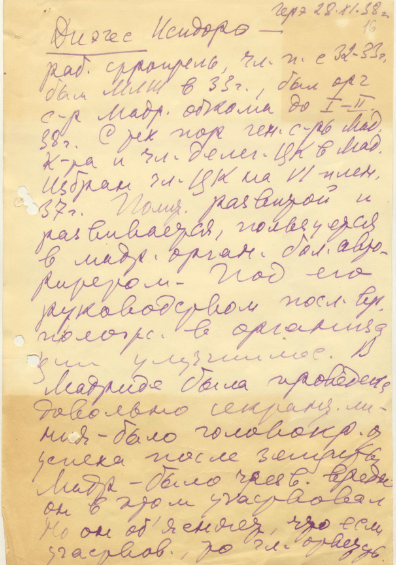 28.XI.38 г.
16
Диэгес Исидоро —
раб. строитель, чл. п. с 32-33 г.
был МЛК в 33 г., был орг
с-р Мадр. обкома до I-II
38 г. С тех пор ген. с-рь Мад.
К-та и чл. делег. ЦК в Мад.
Избран чл. ЦК на VI плен.
37 г. Полит. развитой и
развивается, пользуется
в мадр. орган. бол. авто-
ритетом - Под его
руководством посл. вр.
полож. в организа
ции улучшилос. В
Мадриде была проведена
довольно сектант. ли-
ния - было головокр. от
успеха после защиты
Мадр - было
он в этом участвовал
Но он об'ясняет, что если
участвов., то чл.